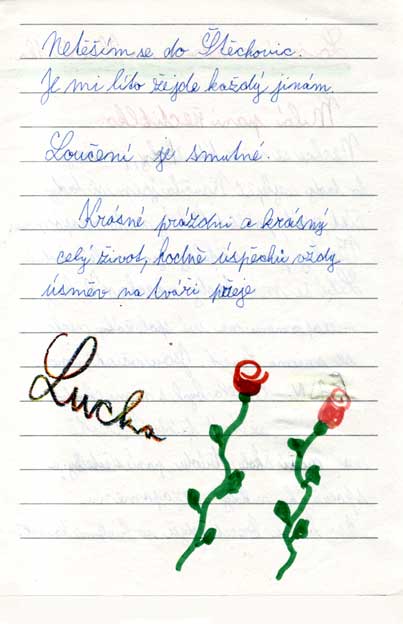 Netěším se do Štěchovic.
Je mi líto že jde každý jinám.
Loučení je smutné.
Krásné prázdni a krásný
celý život, hodně úspěchů vždy
úsměv na tváři přeje
Lucka